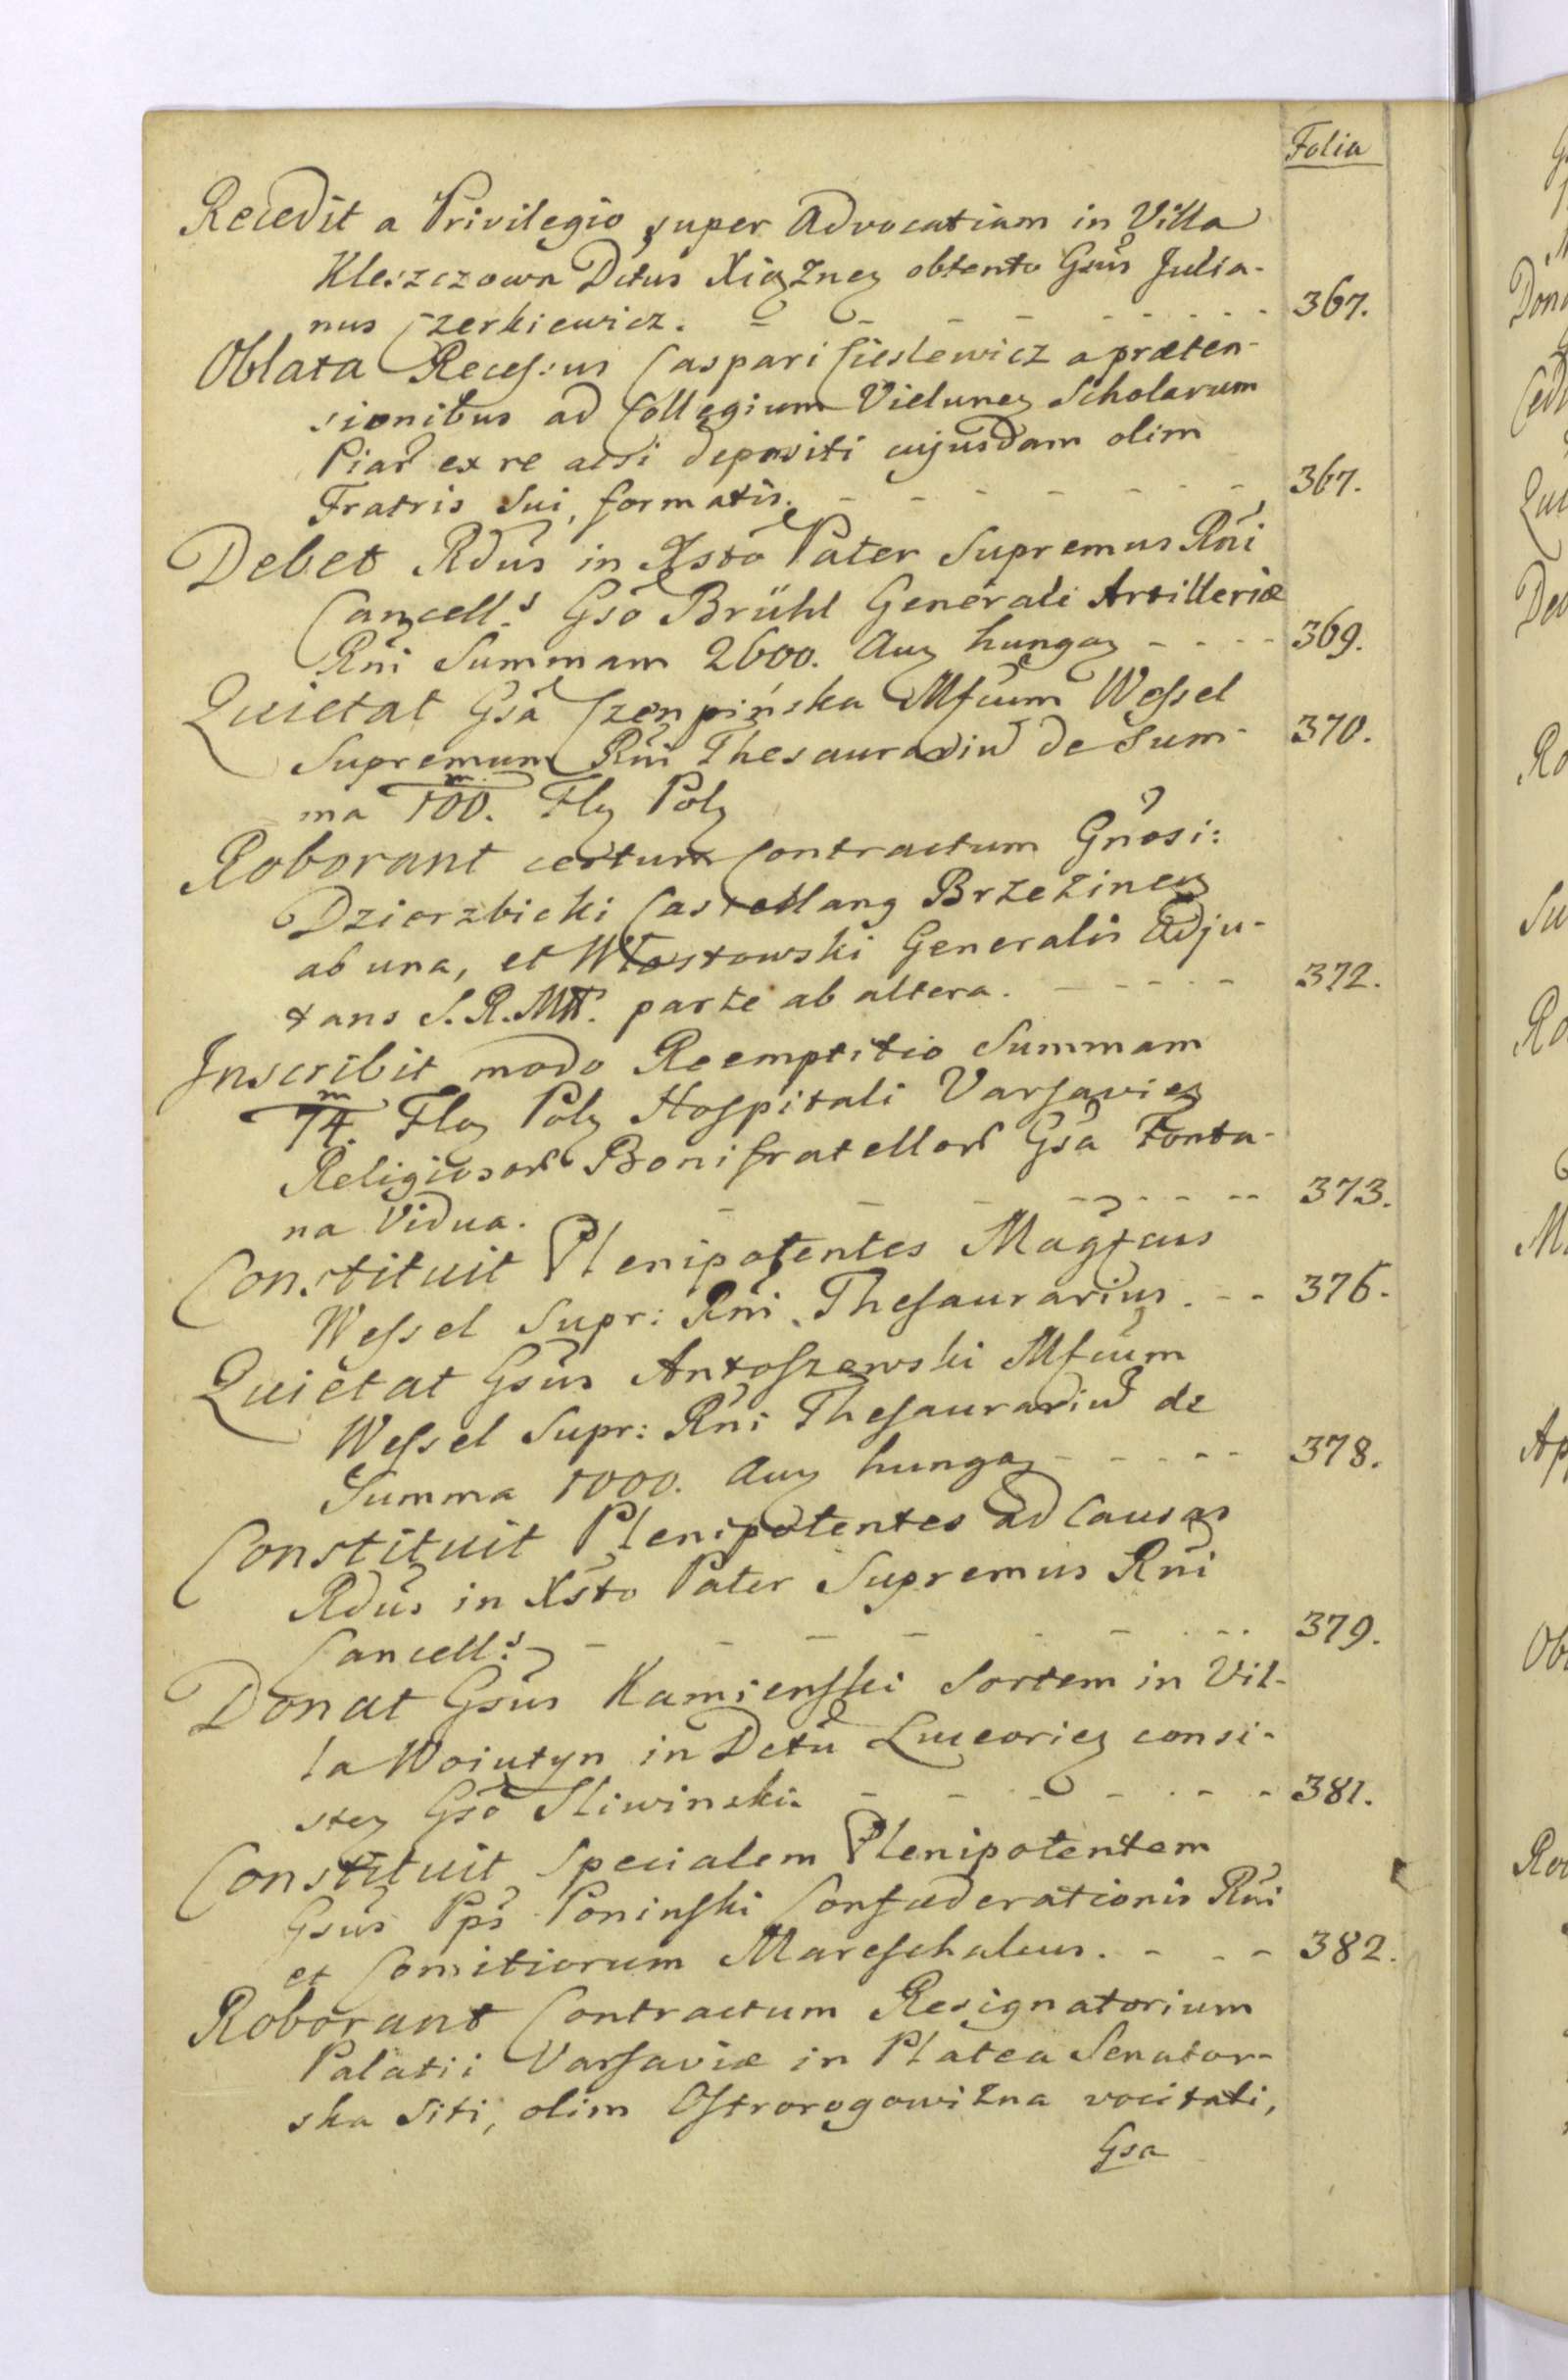 Folia
Recedit a Privilegio super Advocatiam in Villa
Kleszczowa Dctus Xiążnez obtento Gsus Julia-
nus Czerkiewicz. - - - - - - - 367.
Oblata Recessus Caspari Cieslewicz a præten-
sionibus ad Collegium Vielunez Scholarum
Piar ex re acsi depositi cujusdam olim
Fratris Sui, formatis. - - - - - - - 367.
Debet Rdus in Xsto Pater Supremus Rni
Cancells Gso Brühl Generali Artilleriæ
Rni Summam 2600. Auz hungaz - - - - 369.
Quietat Gsa Czempińska Mfcum Wessel
Supremum Rni Thesaurariu de Sum- 370.
ma 100. m Flz Polz
Roborant certum Contractum Gnosi:
Dzierzbicki Castellanz Brzezinez
ab una, et Włostowski Generalis Adju-
tans S.R.Mtt. parte ab altera. - - - - - 372.
Inscribit modo Reemptitio Summam
74. m Floz Polz Hospitali Varsaviez
Religiosor Bonifratellor Gsa Fonta-
na Vidua. - - - - - - - 373.
Constituit Plenipotentes Magfcus
Wessel Supr: Rni Thesaurarius. - - 376.
Quietat Gsus Antoszewski Mfcum
Wessel Supr: Rni Thesaurariu de
Summa 1000. Auz hungaz - - - - - 378.
Constituit Plenipotentes ad Causas
Rdus in Xsto Pater Supremus Rni
Cancells - - - - - - - 379.
Donat Gsus Kamienski Sortem in Vil-
la Woiutyn in Dctu Luceoriez consi-
stez Gso Sliwinski. - - - - - - - 381.
Constituit Specialem Plenipotentem
Gsus Pps Poninski Confæderationis Rni
et Comitiorum Mareschalcus. - - - 382.
Roborant Contractum Resignatorium
Palatii Varsaviæ in Platea Senator-
ska Siti, olim Ostrorogowizna vocitati,
Gsa